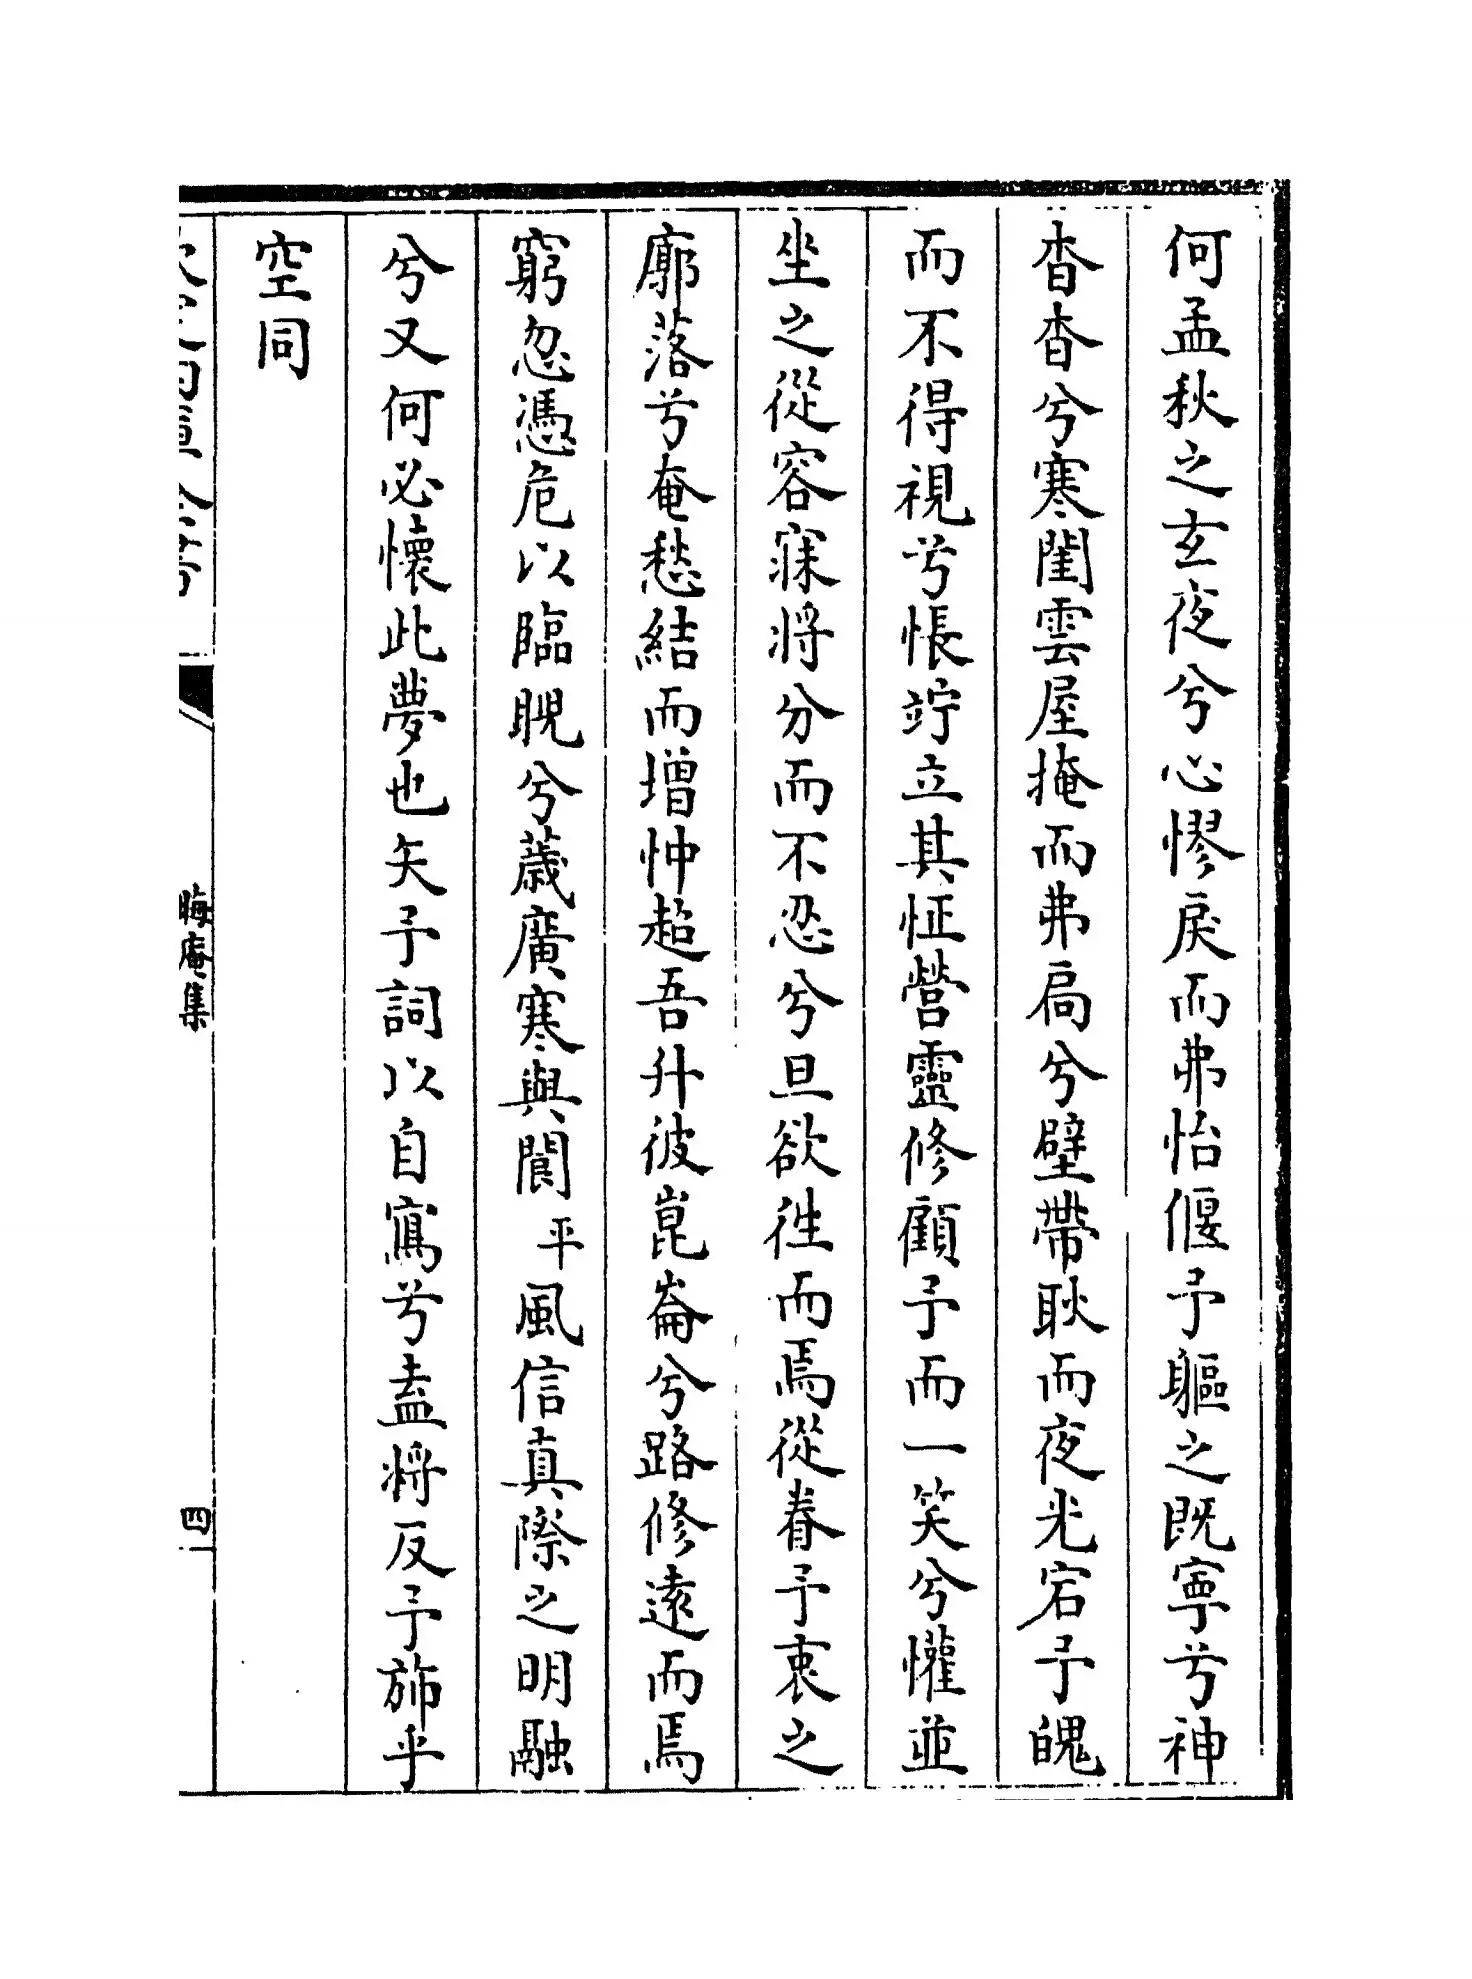 何孟秋之玄夜兮心憀戾而弗怡偃予軀之既寧兮神
杳杳兮寒闺雲屋掩而弗扃兮壁帶耿而夜光宕予魄
而不得視兮悵竚立其怔營靈修顧予而一笑兮懽並
坐之從容寐將分而不忍兮旦欲徃而焉從眷予衷之
廓落兮奄愁結而增忡超吾升彼崑崙兮路修遠而焉
窮忽憑危以臨睨兮蕆廣寒與閬平風信真際之明融
兮又何必懷此夢也矢予詞以自寫兮盍將反予斾乎
空同
晦庵集
四